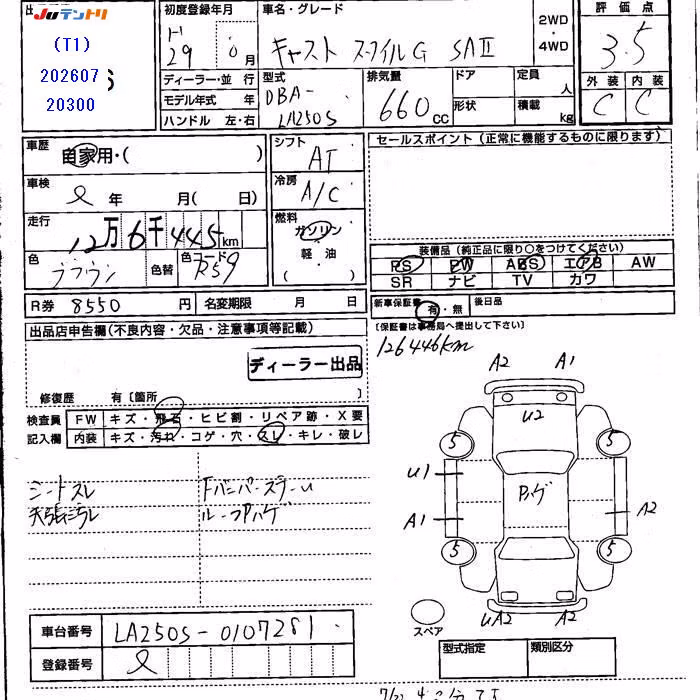 JUテントリ
(T1)
202607
20300
初度登録年月
29 年 月
ディーラー・並 行
モデル年式 年
ハンドル 左・右
車名・グレード
キャスト スタイルG SAⅡ
2WD
・
4WD
型式
DBA-
LA250S
排気量
660 cc
ドア
形状
定員
人
積載
kg
評価点
3.5
外装 内装
C C
車歴
自家用・( )
車検
年 月( 日)
走行
12万6千445km
色
ブラウン
色替
色コード
R59
シフト
AT
冷房
A/C
燃料
ガソリン
軽・油
( )
セールスポイント(正常に機能するものに限ります)
装備品(純正品に限り○をつけてください)
PS PW ABS エアB AW
SR ナビ TV カワ
R券 8550 円
名変期限 月 日
新車保証書 有・無
後日品
〔保証書は事務局へ提出して下さい〕
126446km
出品店申告欄(不良内容・欠品・注意事項等記載)
ディーラー出品
修復歴 有〔箇所 〕
検査員
記入欄
FW キズ・飛石・ヒビ割・リペア跡・X要
内装 キズ・汚れ・コゲ・穴・スレ・キレ・破レ
シートスレ
天張汚レ
FバンパーステーU
ルーフPハゲ
A2 A1
U2
5 5
U1
Pハゲ
A1 A2
5 5
UA2 A2
スペア
車台番号 LA250S-0107281
登録番号
型式指定 類別区分